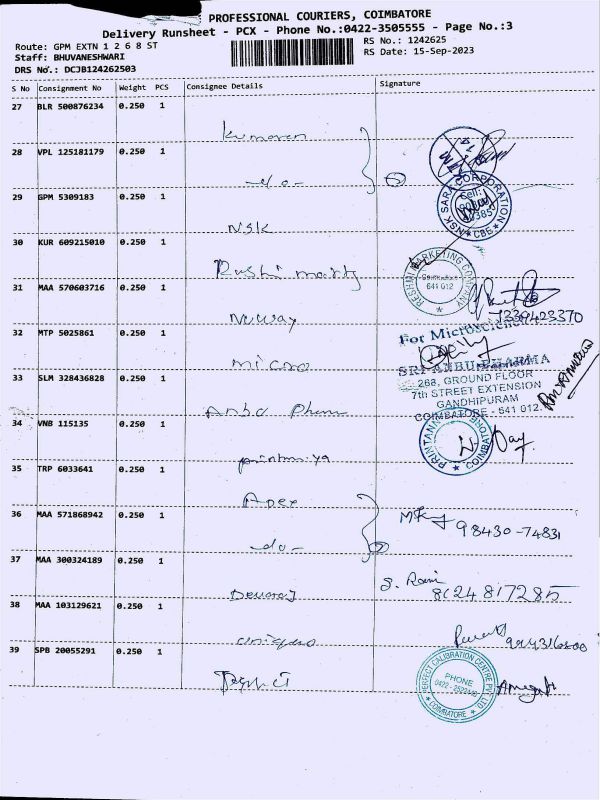 PROFESSIONAL COURIERS, COIMBATORE
Delivery Runsheet - PCX - Phone No.:0422-3505555 - Page No.:3
Route: GPM EXTN 1 2 6 8 ST
RS No.: 1242625
Staff: BHUVANESHWARI
RS Date: 15-Sep-2023
DRS No.: DCJB124262503
S No Consignment No Weight PCS Consignee Details Signature
27 BLR 500876234 0.250 1
Kumaran
28 VPL 125181179 0.250 1
-do-
29 GPM 5309183 0.250 1
NSK SARA CORPORATION
CBE
NSK
30 KUR 609215010 0.250 1
RESHMI MARKETING COMPANY
Coimbatore
641 012
31 MAA 570603716 0.250 1
7339423370
Neway
32 MTP 5025861 0.250 1
For Microscience
micro
33 SLM 328436828 0.250 1
SRI ANBU PHARMA
268, GROUND FLOOR
7th STREET EXTENSION
GANDHIPURAM
COIMBATORE - 641 012.
Anbu Pharm
34 VNB 115135 0.250 1
COIMBATORE
35 TRP 6033641 0.250 1
Apex
36 MAA 571868942 0.250 1
98430-74831
-do-
37 MAA 300324189 0.250 1
S. Rani
8124817285
Devaraj
38 MAA 103129621 0.250 1
39 SPB 20055291 0.250 1
PERFECT CALIBRATION CENTRE PVT LTD
PHONE
COIMBATORE